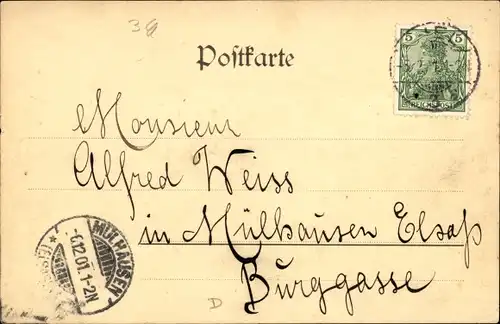 39
Postkarte
5 5
REICHSPOST
Monsieur
Alfred Weiss
in Mülhausen Elsaß
Burggasse
MÜLHAUSEN
-6.12.01. 1-2N
D